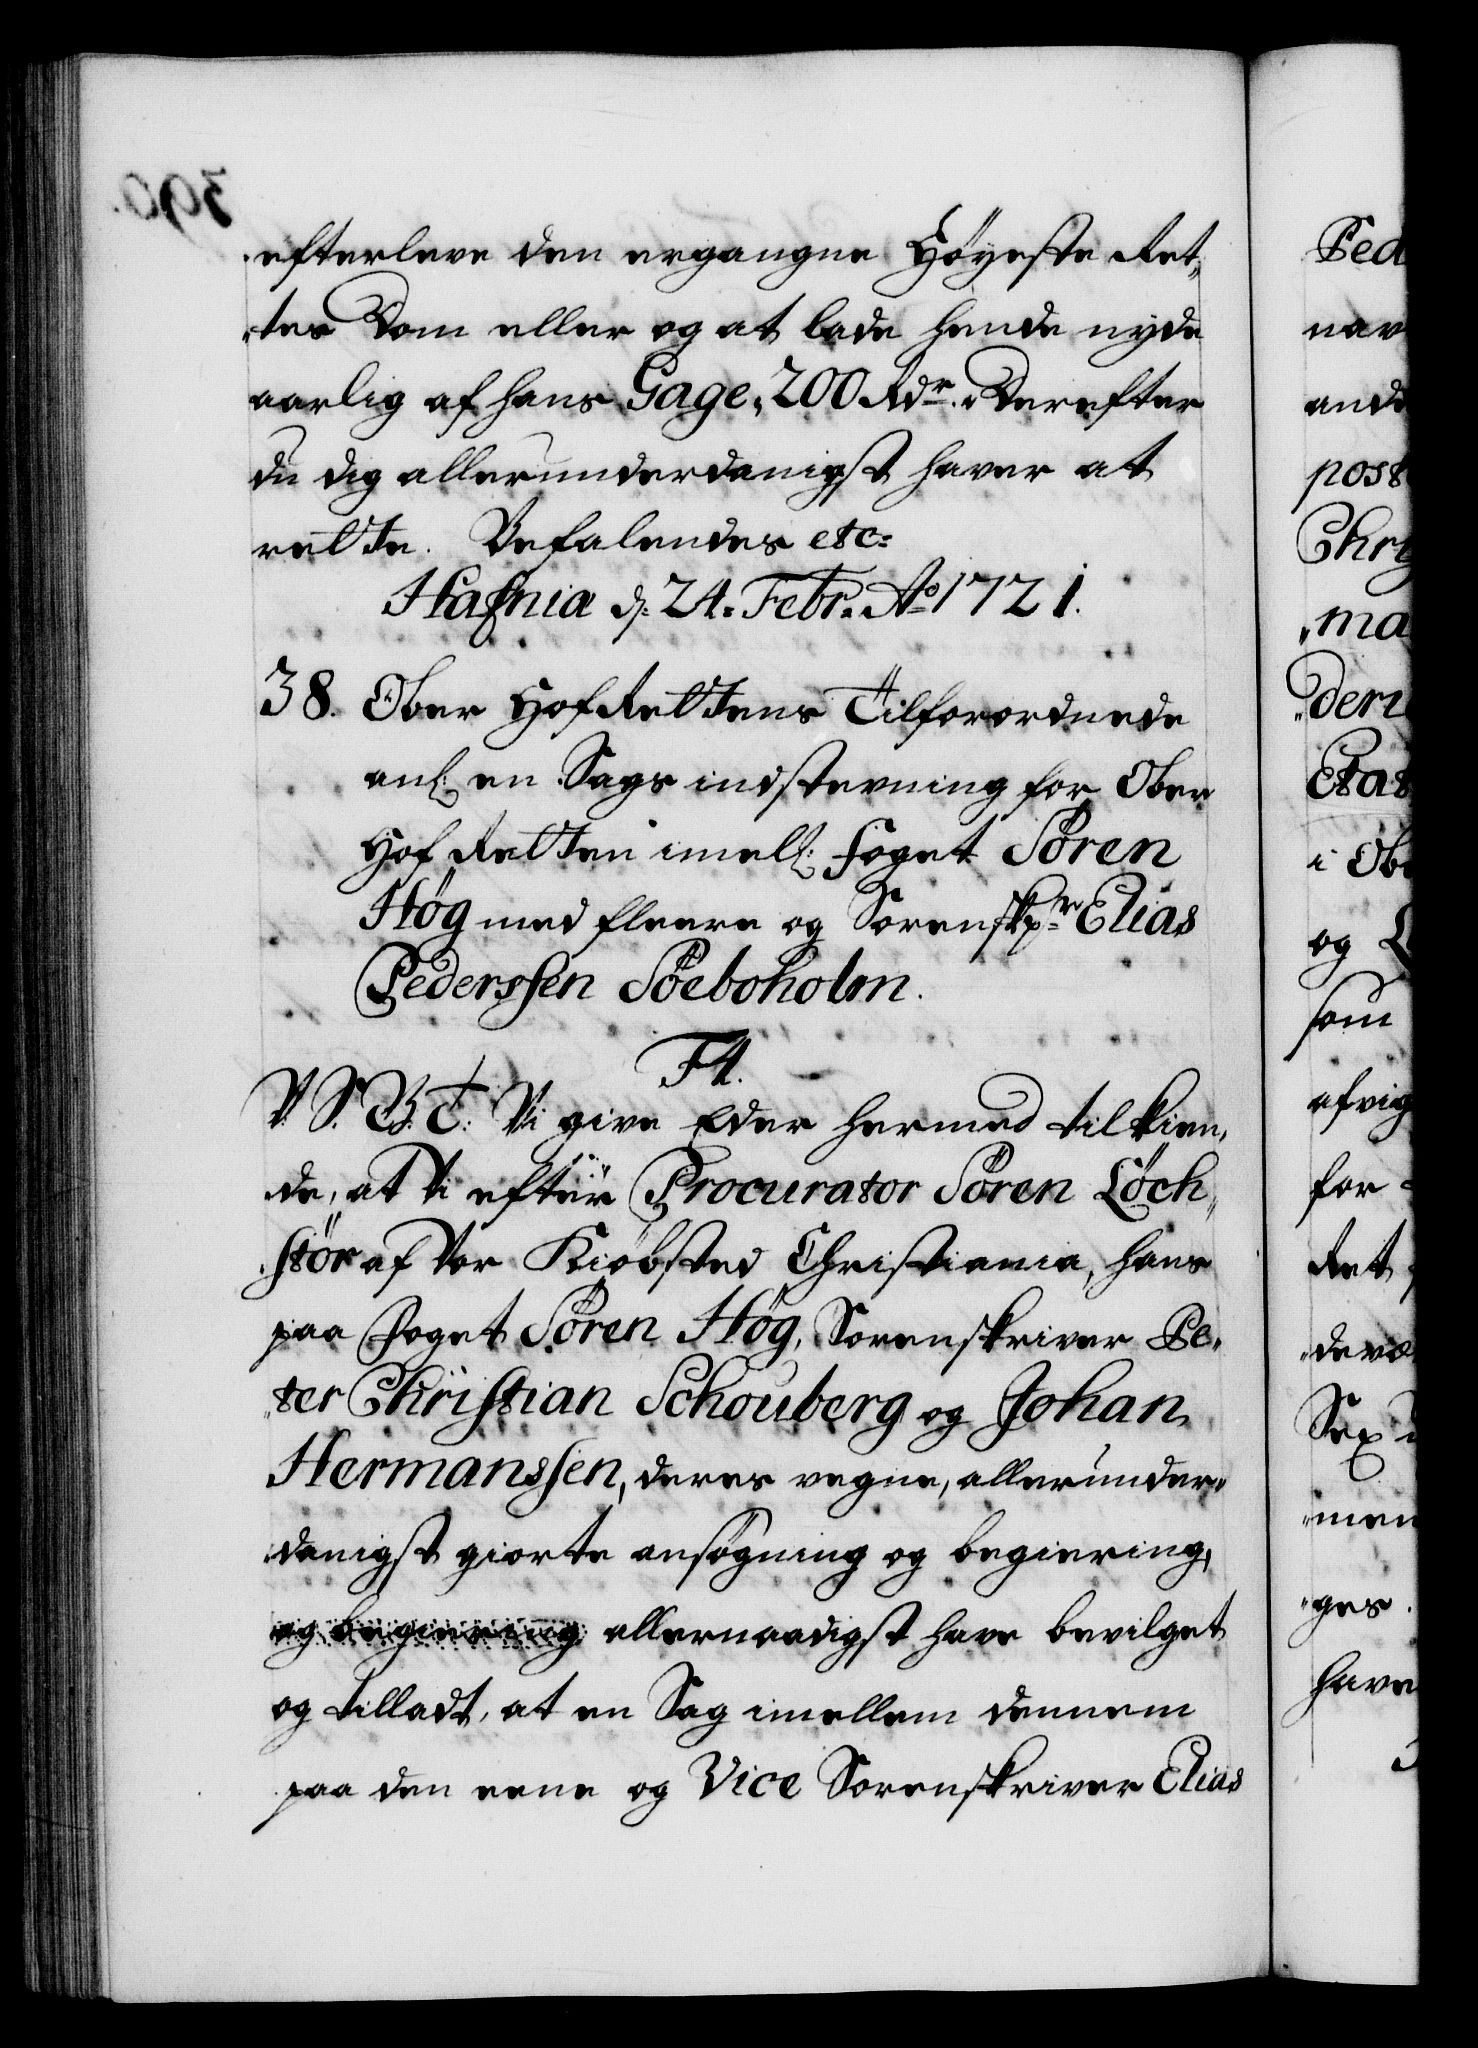 efterleve den ergangne Høyeste Ret„
„tes Dom eller og at lade hende nyde
aarlig af hans Gage, 200 Rdr. Derefter
du dig allerunderdanigst haver at
rette. Befalendes etc:
Hafnia d: 24. Febr: Ao 1721.
38. Ober Hof Rettens Tilforordnede
anl: en Sags indstevning for Ober
Hof Retten imell: foget Sören
Høg med fleere og Sorenskr. Elias
Pederssen Söeboholm.
F4.
V. S. G. T. Vi give Eder hermed tilkien„
de, at Vi efter Procurator Sören Löch„
„stör af Vor Kiöbsted Christiania, hans
paa foget Sören Høg, Sorenskriver Pe„
„ter Christian Schouberg og Johan
Hermanssen, deres vegne, allerunder„
danigst giorte ansögning og begiering,
og begiering allernaadigst have bevilget
og tilladt, at en Sag imellem dennem
paa den eene og Vice Sorenskriver Elias
390.
Ped
nav
ande
post
Chri
„ma
„deri
Etat
i Obe
og L
som
afvig
for
Ret
„de
Sex
„men
„ges.
have